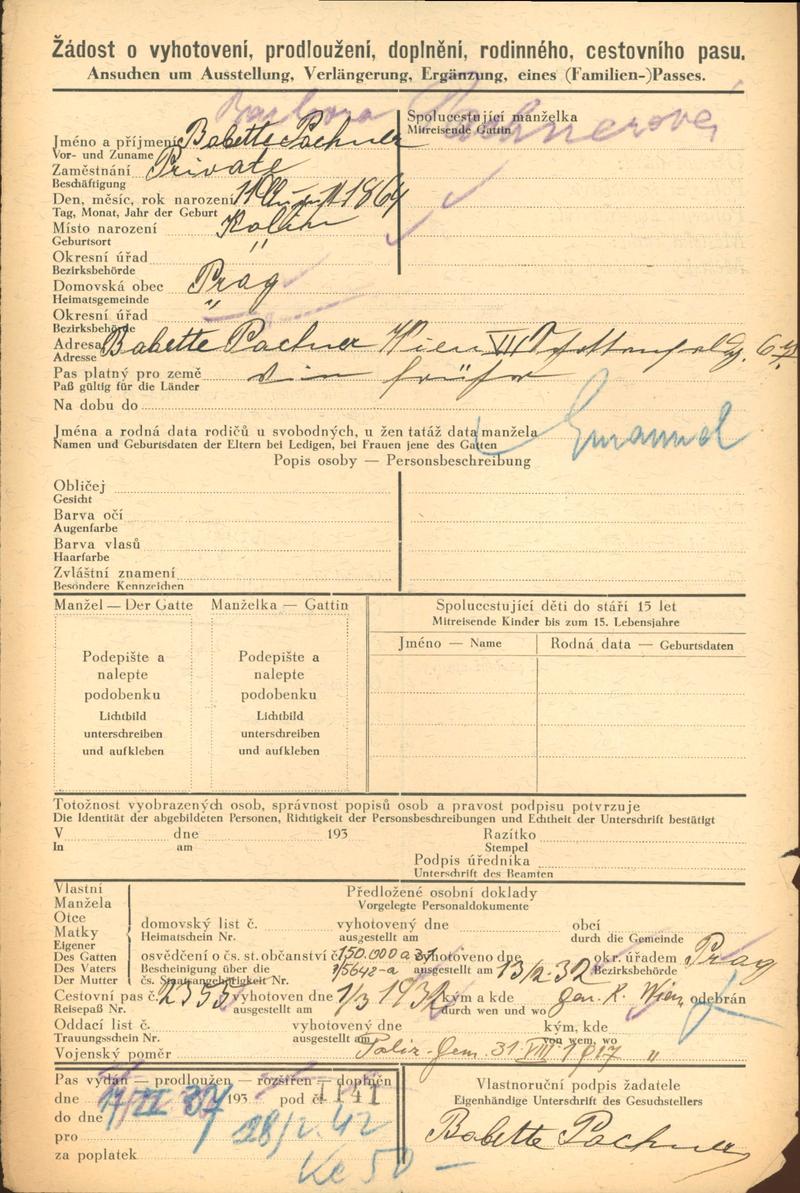 Žádost o vyhotovení, prodloužení, doplnění, rodinného, cestovního pasu.
Ansuchen um Ausstellung, Verlängerung, Ergänzung, eines (Familien-)Passes.
Barbora Pachnerová
Spolucestující manželka
Mitreisende Gattin
Jméno a příjmení Babette Pachner
Vor- und Zuname
Zaměstnání Private
Beschäftigung
Den, měsíc, rok narození 11 August 1864
Tag, Monat, Jahr der Geburt
Místo narození Kolin
Geburtsort
Okresní úřad "
Bezirksbehörde
Domovská obec Prag
Heimatsgemeinde
Okresní úřad "
Bezirksbehörde
Adresa Babette Pachner Wien VII 67.
Adresse
Pas platný pro země wie früher
Paß gültig für die Länder
Na dobu do
Jména a rodná data rodičů u svobodných, u žen tatáž data manžela Emanuel
Namen und Geburtsdaten der Eltern bei Ledigen, bei Frauen jene des Gatten
Popis osoby — Personsbeschreibung
Obličej
Gesicht
Barva očí
Augenfarbe
Barva vlasů
Haarfarbe
Zvláštní znamení
Besondere Kennzeichen
Manžel — Der Gatte Manželka — Gattin
Podepište a Podepište a
nalepte nalepte
podobenku podobenku
Lichtbild Lichtbild
unterschreiben unterschreiben
und aufkleben und aufkleben
Spolucestující děti do stáří 15 let
Mitreisende Kinder bis zum 15. Lebensjahre
Jméno — Name Rodná data — Geburtsdaten
Totožnost vyobrazených osob, správnost popisů osob a pravost podpisu potvrzuje
Die Identität der abgebildeten Personen, Richtigkeit der Personsbeschreibungen und Echtheit der Unterschrift bestätigt
V dne 193 Razítko
In am Stempel
Podpis úředníka
Unterschrift des Beamten
Vlastní
Manžela
Otce
Matky
Eigener
Des Gatten
Des Vaters
Der Mutter
Předložené osobní doklady
Vorgelegte Personaldokumente
domovský list č. vyhotovený dne obcí
Heimatschein Nr. ausgestellt am durch die Gemeinde
osvědčení o čs. st. občanství č. 150.000 a 31 vyhotoveno dne okr. úřadem Prag
Bescheinigung über die 15642-a ausgestellt am 13/2.32 Bezirksbehörde
čs. Staatsangehörigkeit Nr.
Cestovní pas č. 2355 vyhotoven dne 1/3 1932 kým a kde gen. K. Wien odebrán
Reisepaß Nr. ausgestellt am durch wen und wo
Oddací list č. vyhotovený dne kým, kde
Trauungsschein Nr. ausgestellt am von wem, wo
Vojenský poměr Poliz-Gem. 31. VIII 1917 "
Pas vydán — prodloužen — rozšířen — doplněn
dne 17/II 37 193 pod č. 4141
do dne 28/2. 42
pro
za poplatek Kč 50 —
Vlastnoruční podpis žadatele
Eigenhändige Unterschrift des Gesuchstellers
Babette Pachner